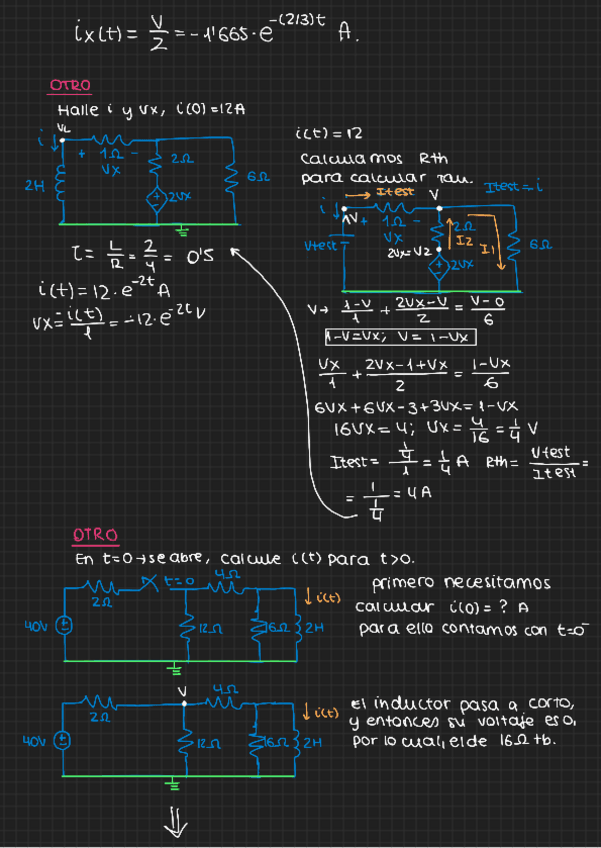 ix(t) = V/2 = -1'665·e^-(2/3)t A.
OTRO
Halle i y vx, i(0)=12A
VL
i
+ 1Ω -
Vx
2Ω
2H
6Ω
2Vx
τ = L/R = 2/4 = 0'5
i(t) = 12·e^-2t A
Vx = i(t)/1 = -12·e^-2t V
i(t) = 12
Calculamos Rth
para calcular Tau.
Itest
V
Itest = i
i
1V + 1Ω -
Vx
2Ω
Vtest
2Vx=V2
I2
I1
6Ω
2Vx
V→ (1-V)/1 + (2Vx-V)/2 = (V-0)/6
1-V=Vx; V = 1-Vx
Vx/1 + (2Vx-1+Vx)/2 = (1-Vx)/6
6Vx+6Vx-3+3Vx=1-Vx
16Vx=4; Vx= 4/16 = 1/4 V
Itest = (1/4)/1 = 1/4 A Rth = Vtest/Itest =
= 1/(1/4) = 4A
OTRO
En t=0→se abre, calcule i(t) para t>0.
t=0
4Ω
2Ω
i(t)
40V
12Ω
16Ω
2H
primero necesitamos
calcular i(0) = ? A
para ello contamos con t=0⁻
V
4Ω
2Ω
i(t)
40V
12Ω
16Ω
2H
El inductor pasa a corto,
y entonces su voltaje es 0,
por lo cual, el de 16Ω tb.